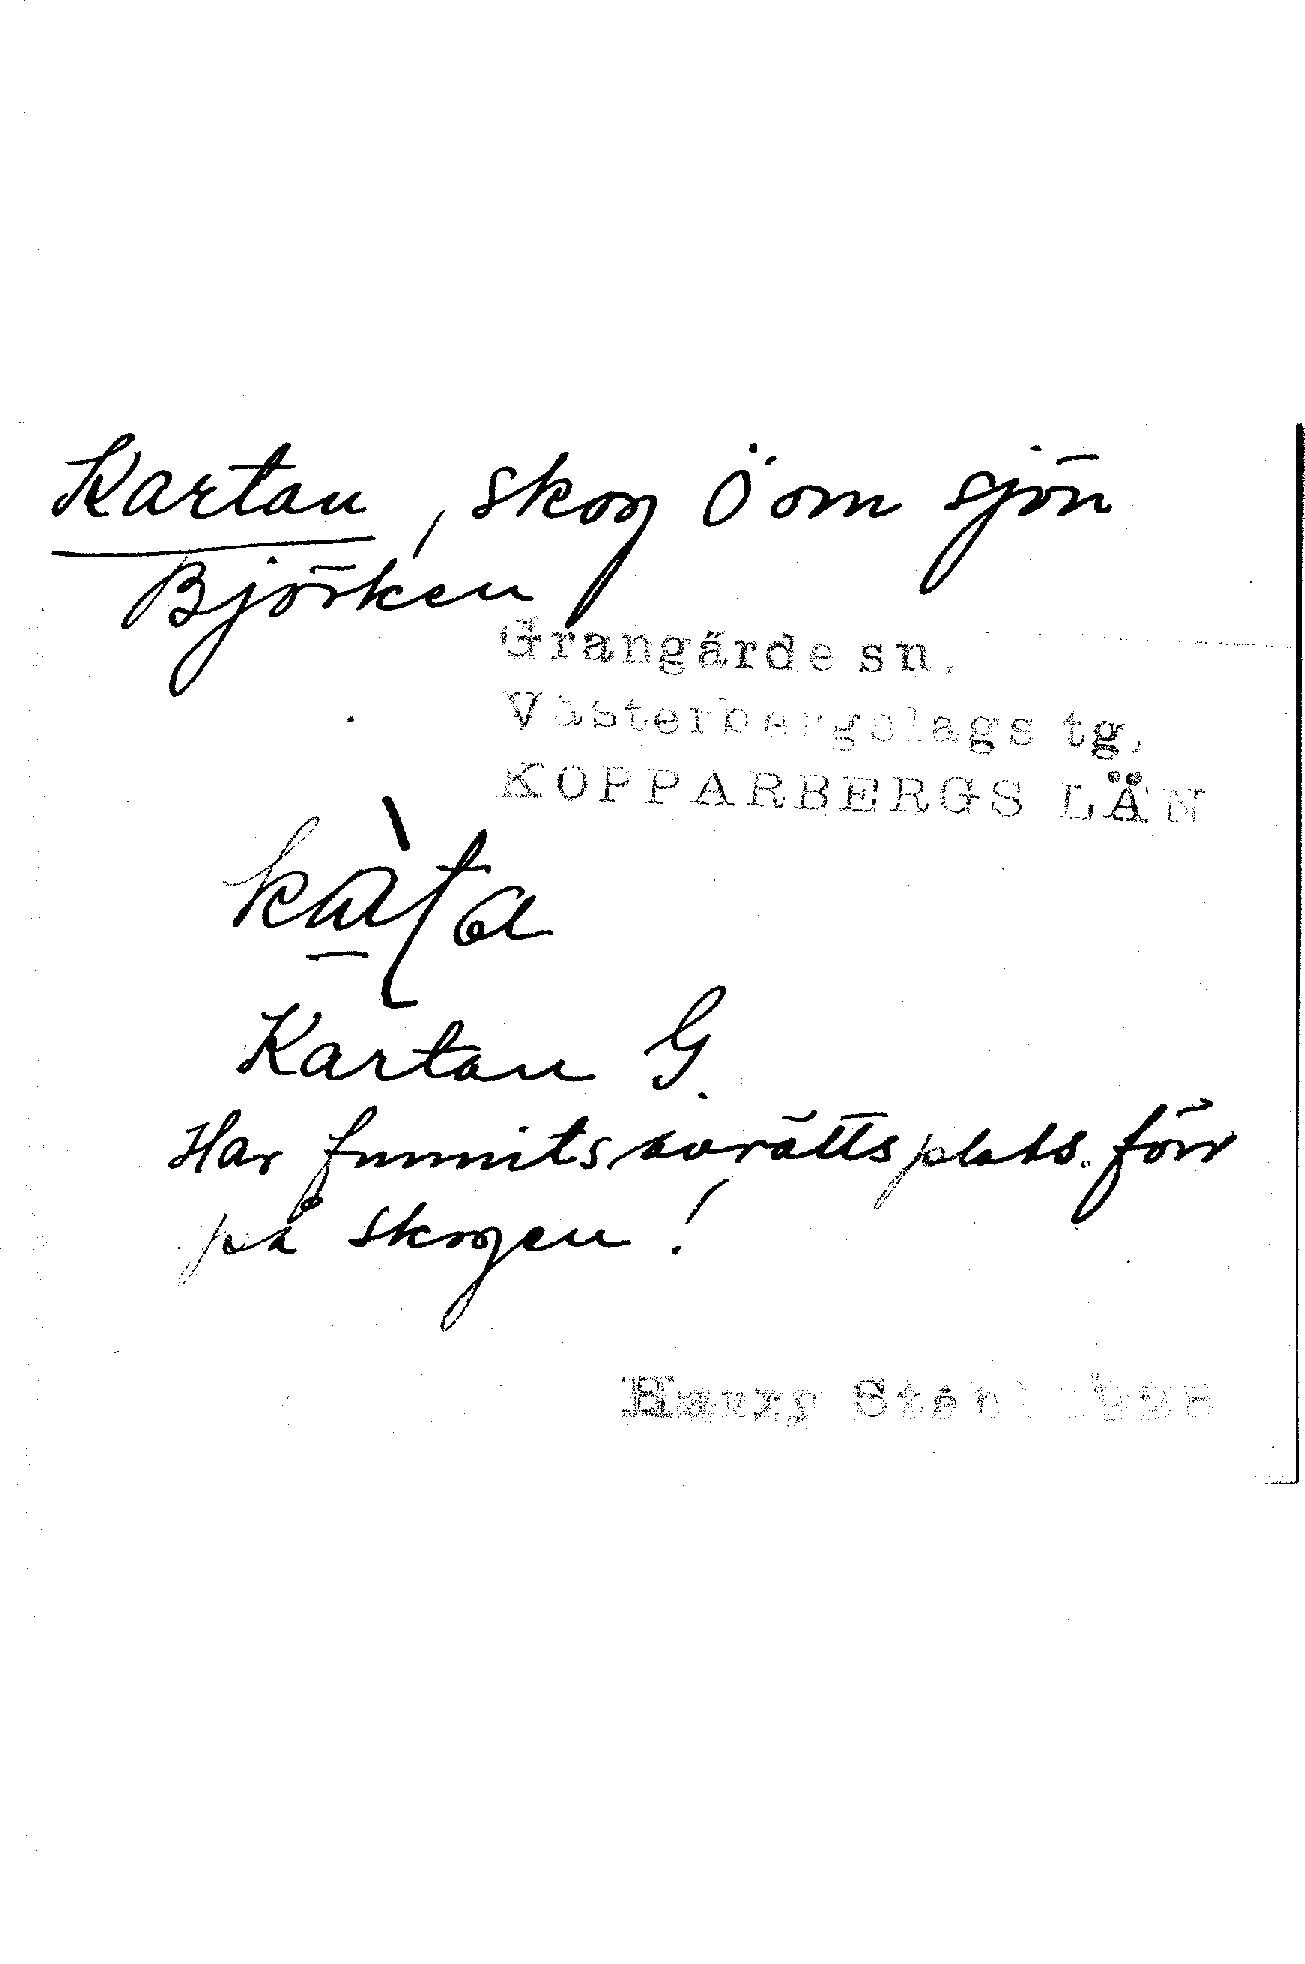 Kartan, skog Ö om sjön
Björken
Grangärde sn.
Västerbergslags tg.
KOPPARBERGS LÄN
Kartan G.
Har funnits avrättsplats förr
på skogen!
Harry